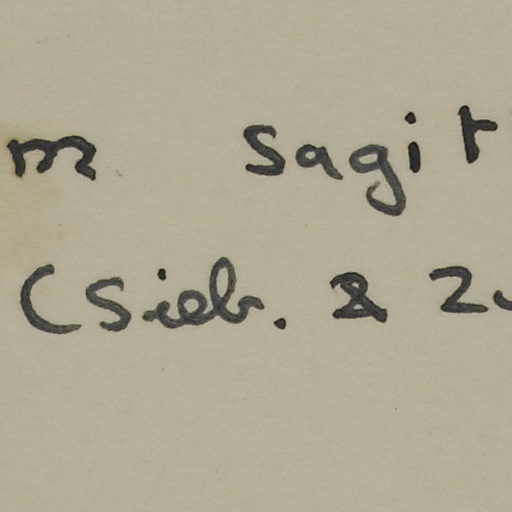 m sagit
(Sieb. & Zu